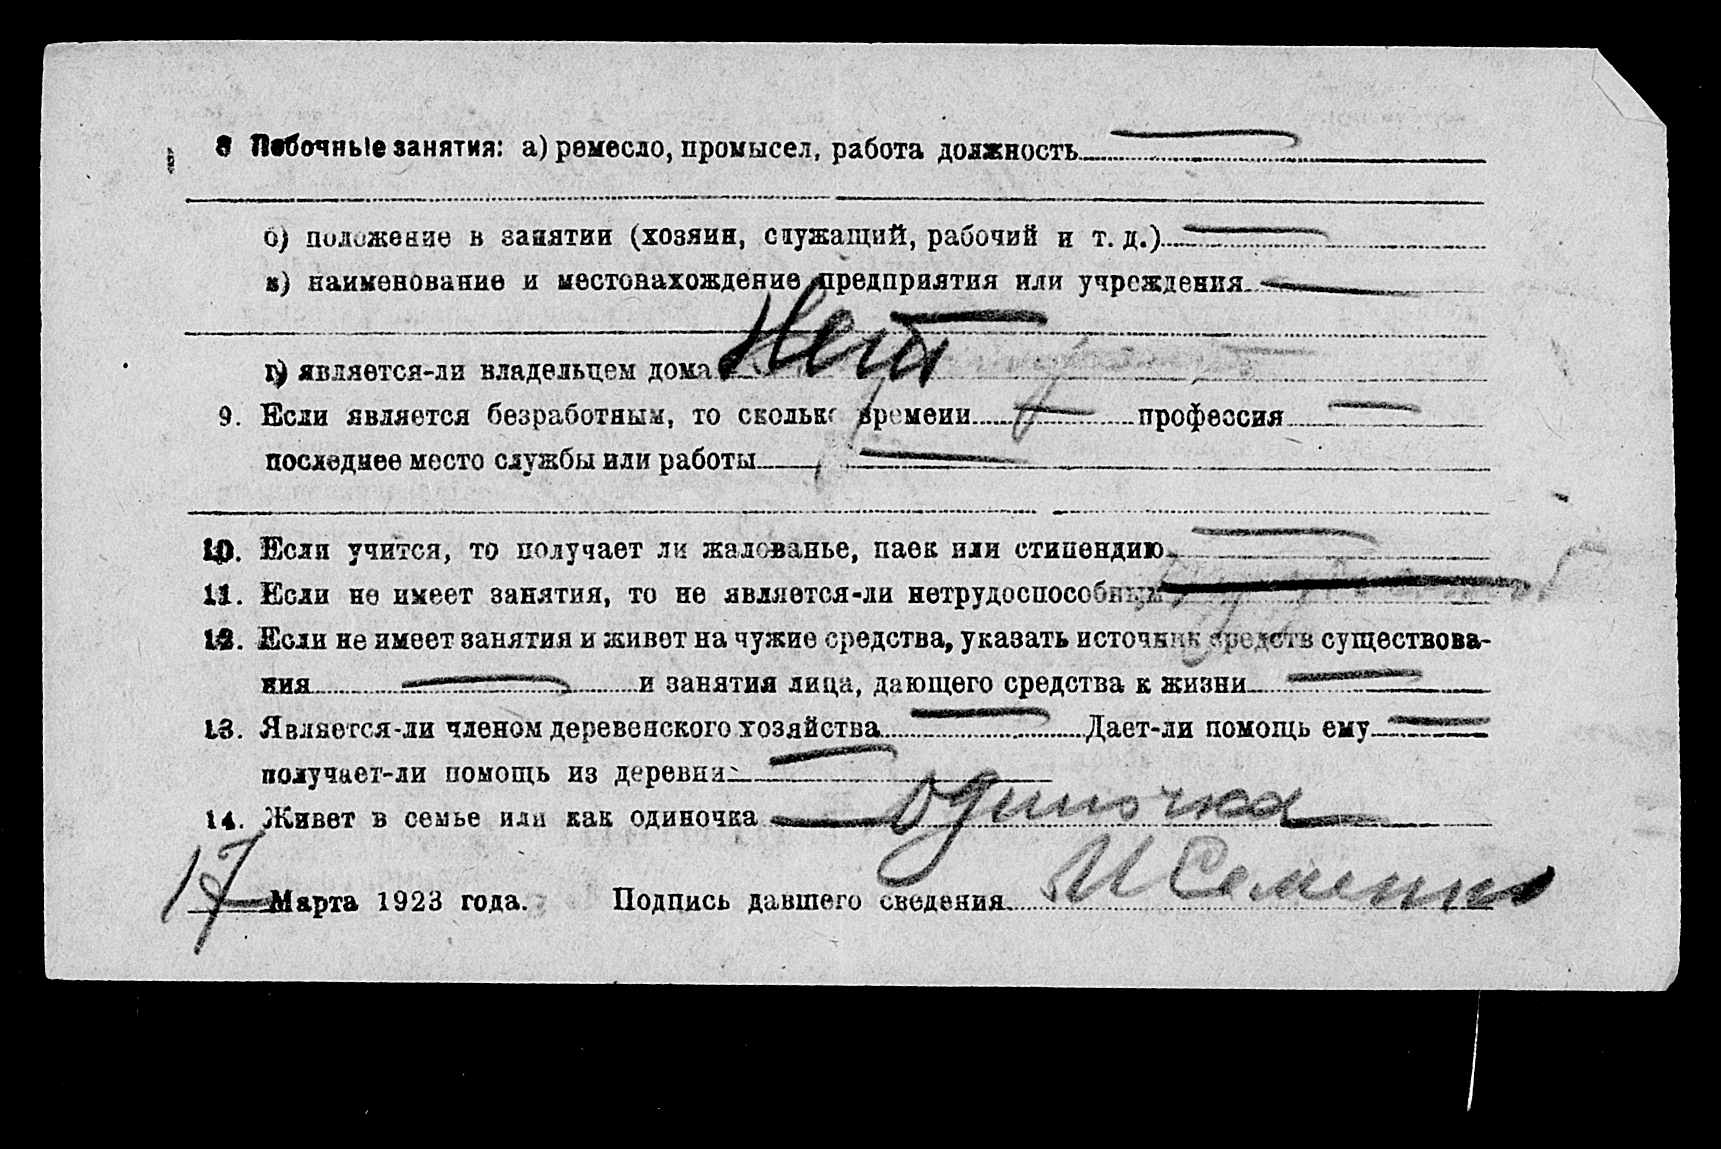 8 Побочные занятия: а) ремесло, промысел, работа должность —
б) положение в занятии (хозяин, служащий, рабочий и т. д.) —
в) наименование и местонахождение предприятия или учреждения —
г) является-ли владельцем дома Нет
9. Если является безработным, то сколько времени — профессия —
последнее место службы или работы —
10. Если учится, то получает ли жалованье, паек или стипендию —
11. Если не имеет занятия, то не является-ли нетрудоспособным —
12. Если не имеет занятия и живет на чужие средства, указать источник средств существова-
ния — и занятия лица, дающего средства к жизни —
13. Является-ли членом деревенского хозяйства — Дает-ли помощь ему —
получает-ли помощь из деревни —
14. Живет в семье или как одиночка одиночка
17 Марта 1923 года. Подпись давшего сведения